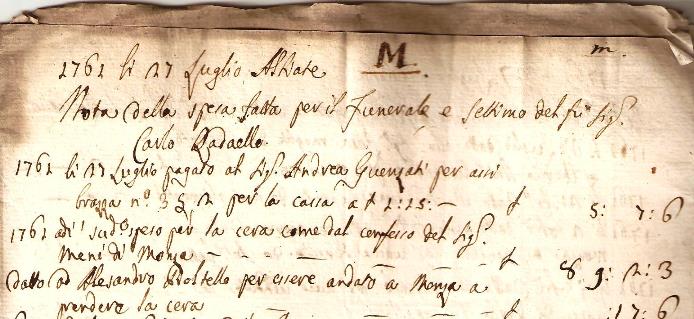 M.
m.
1761 li 27 Luglio Albiate
Nota della spesa fatta per il Funerale e Settimo del fù Sig.r
Carlo Radaello
1761 li 27 Luglio pagato al Sig.r Andrea Guenzati per assi
brazza n.o 3 2 per la cassa a £ 1:15:—£ 5: 7: 6
1761 adi sud.o speso per la cera come dal confesso del Sig.r
Meni di Monza — — — £ 89: 2: 3
datto ad Alesandro per essere andato a Monza a
prendere la cera :17: 6